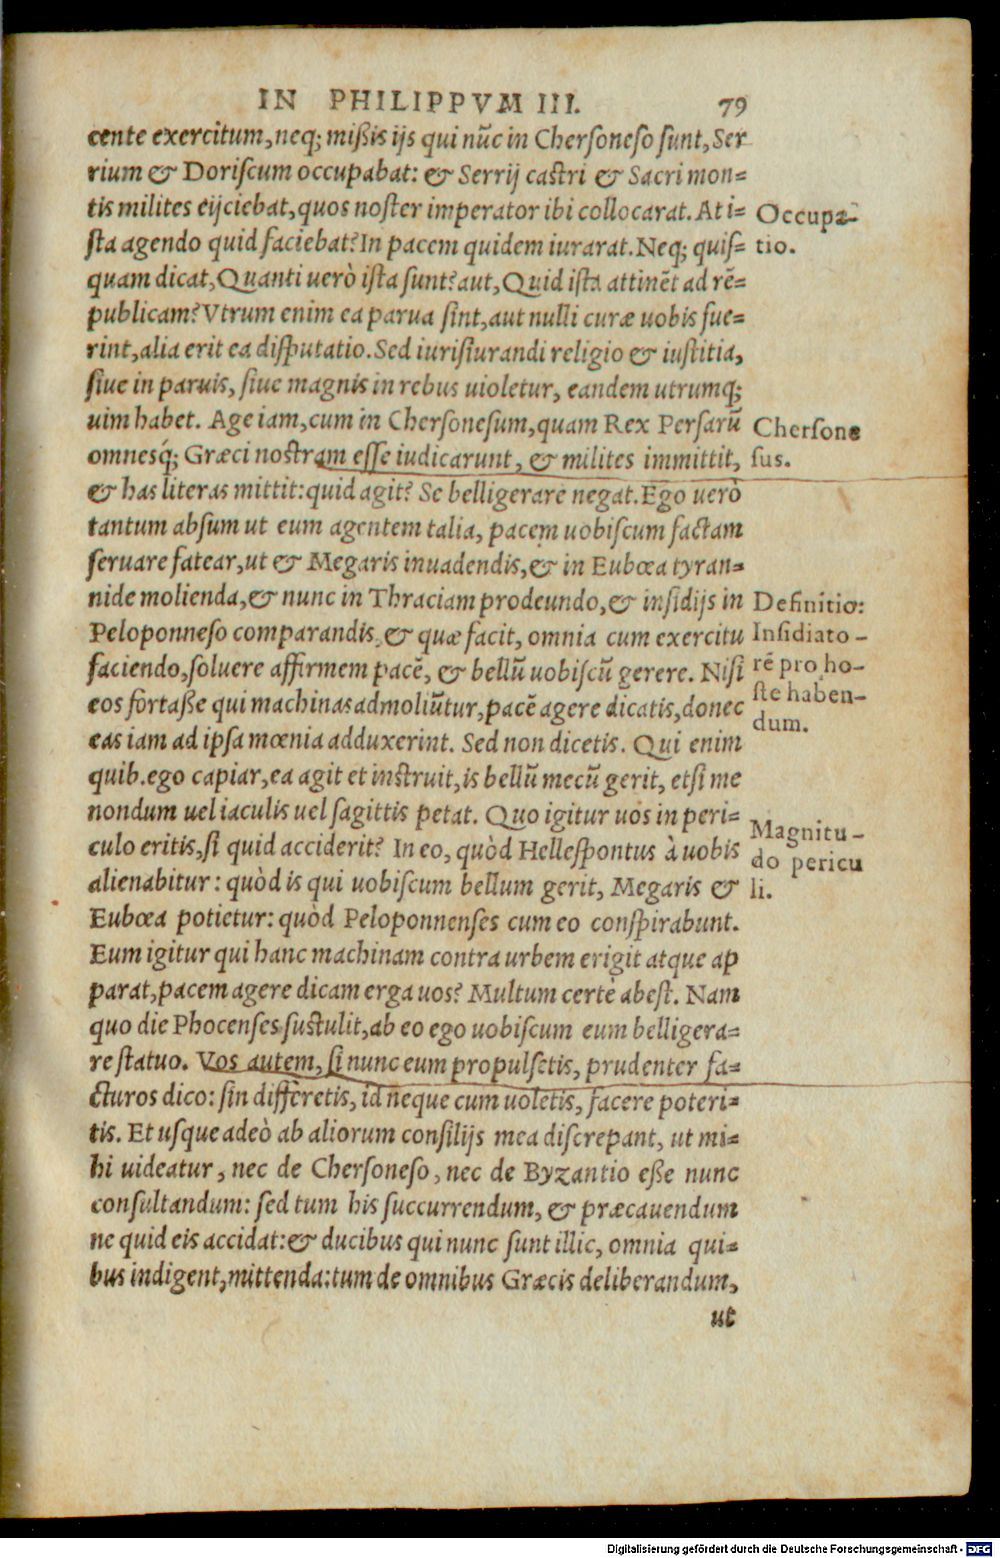 IN PHILIPPVM III. 79
cente exercitum, neq; mißis ijs qui nūc in Chersoneso sunt, Ser
rium & Doriscum occupabat: & Serrij castri & Sacri mon=
tis milites eijciebat, quos noster imperator ibi collocarat. At i=
sta agendo quid faciebat? In pacem quidem iurarat. Neq; quis=
quam dicat, Quanti uerò ista sunt? aut, Quid ista attinēt ad rē=
publicam? Vtrum enim ea parua sint, aut nulli curæ uobis fue=
rint, alia erit ea disputatio. Sed iurisiurandi religio & iustitia,
siue in paruis, siue magnis in rebus uioletur, eandem utrumq;
uim habet. Age iam, cum in Chersonesum, quam Rex Persarū
omnesq́; Græci nostram esse iudicarunt, & milites immittit,
& has literas mittit: quid agit? Se belligerare negat. Ego uerò
tantum absum ut eum agentem talia, pacem uobiscum factam
seruare fatear, ut & Megaris inuadendis, & in Eubœa tyran=
nide molienda, & nunc in Thraciam prodeundo, & insidijs in
Peloponneso comparandis, & quæ facit, omnia cum exercitu
faciendo, soluere affirmem pacē, & bellū uobiscū gerere. Nisi
eos fortaße qui machinas admoliūtur, pacē agere dicatis, donec
eas iam ad ipsa mœnia adduxerint. Sed non dicetis. Qui enim
quib. ego capiar, ea agit et instruit, is bellū mecū gerit, etsi me
nondum uel iaculis uel sagittis petat. Quo igitur uos in peri=
culo eritis, si quid acciderit? In eo, quòd Hellespontus à uobis
alienabitur: quòd is qui uobiscum bellum gerit, Megaris &
Eubœa potietur: quòd Peloponnenses cum eo conspirabunt.
Eum igitur qui hanc machinam contra urbem erigit atque ap
parat, pacem agere dicam erga uos? Multum certè abest. Nam
quo die Phocenses sustulit, ab eo ego uobiscum eum belligera=
re statuo. Vos autem, si nunc eum propulsetis, prudenter fa=
cturos dico: sin differetis, id neque cum uoletis, facere poteri=
tis. Et usque adeò ab aliorum consilijs mea discrepant, ut mi=
hi uideatur, nec de Chersoneso, nec de Byzantio eße nunc
consultandum: sed tum his succurrendum, & præcauendum
ne quid eis accidat: & ducibus qui nunc sunt illic, omnia qui=
bus indigent, mittenda: tum de omnibus Græcis deliberandum,
ut
Occupa-
tio.
Chersone
sus.
Definitio:
Insidiato-
rē pro ho-
ste haben-
dum.
Magnitu-
do pericu
li.
Digitalisierung gefördert durch die Deutsche Forschungsgemeinschaft - DFG